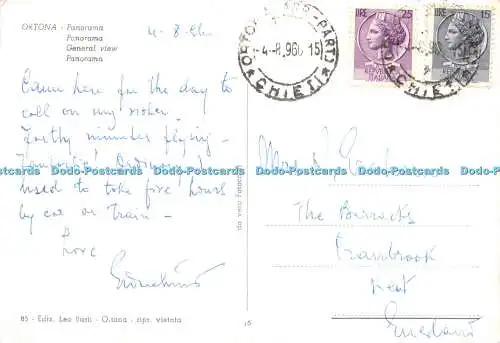 ORTONA - Panorama
Panorama
General view
Panorama
4-8-
Came here for the day to
call on my sister.
Forty minutes flying -
used to take five hours
by car or train -
Love
85 - Ediz. Leo - Ortona - ripr. vietata
da vera Fotografia
16
ORTONA PARTE
-4-8.960 15
CHIETI
LIRE 25
LIRE 15
REPUBBLICA ITALIANA
CHIETI
The Barracks
Cranbrook
Kent
England
Dodo-Postcards Dodo-Postcards Dodo-Postcards Dodo-Postcards Dodo-Postcards Dodo-Postcards